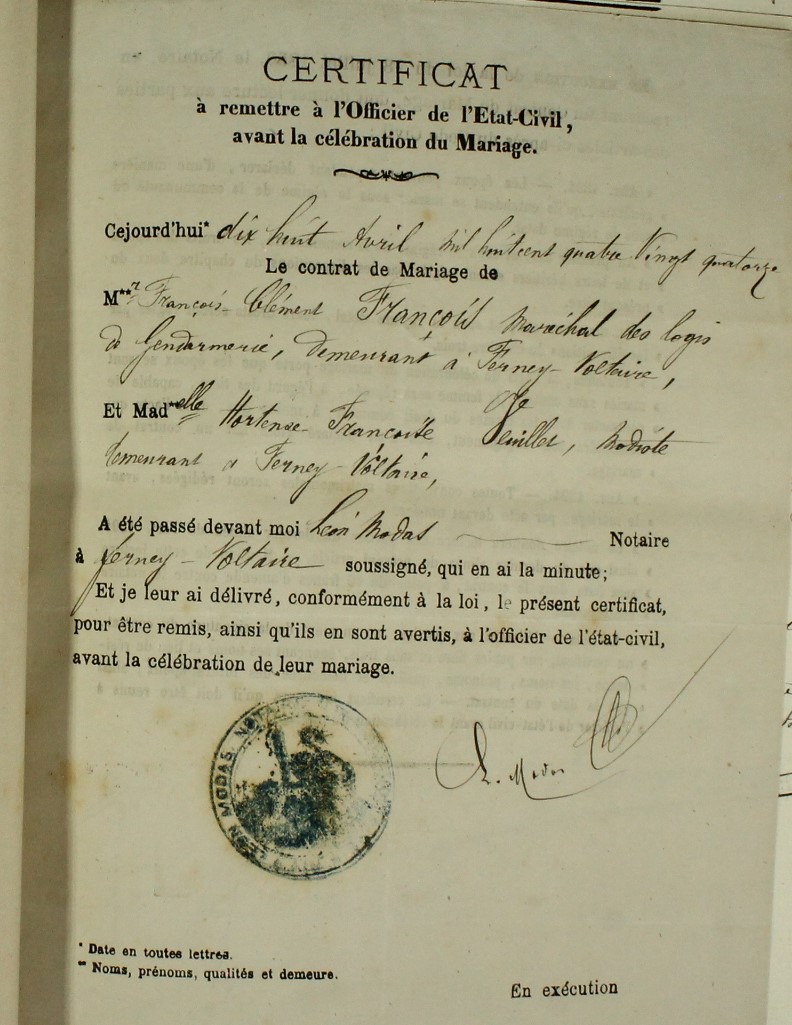 CERTIFICAT
à remettre à l'Officier de l'Etat-Civil,
avant la célébration du Mariage.
Cejourd'hui* dix huit Avril mil huit cent quatre Vingt quatorze
Le contrat de Mariage de
M**r François Clément François Maréchal des logis
de Gendarmerie, demeurant à Ferney-Voltaire,
Et Mad**elle Hortense Françoise Veuillet, Modiste
demeurant à Ferney-Voltaire,
A été passé devant moi Léon Modas Notaire
à Ferney-Voltaire soussigné, qui en ai la minute;
Et je leur ai délivré, conformément à la loi, le présent certificat,
pour être remis, ainsi qu'ils en sont avertis, à l'officier de l'état-civil,
avant la célébration de leur mariage.
LEON MODAS NOTAIRE
L. Modas
* Date en toutes lettres.
** Noms, prénoms, qualités et demeure.
En exécution